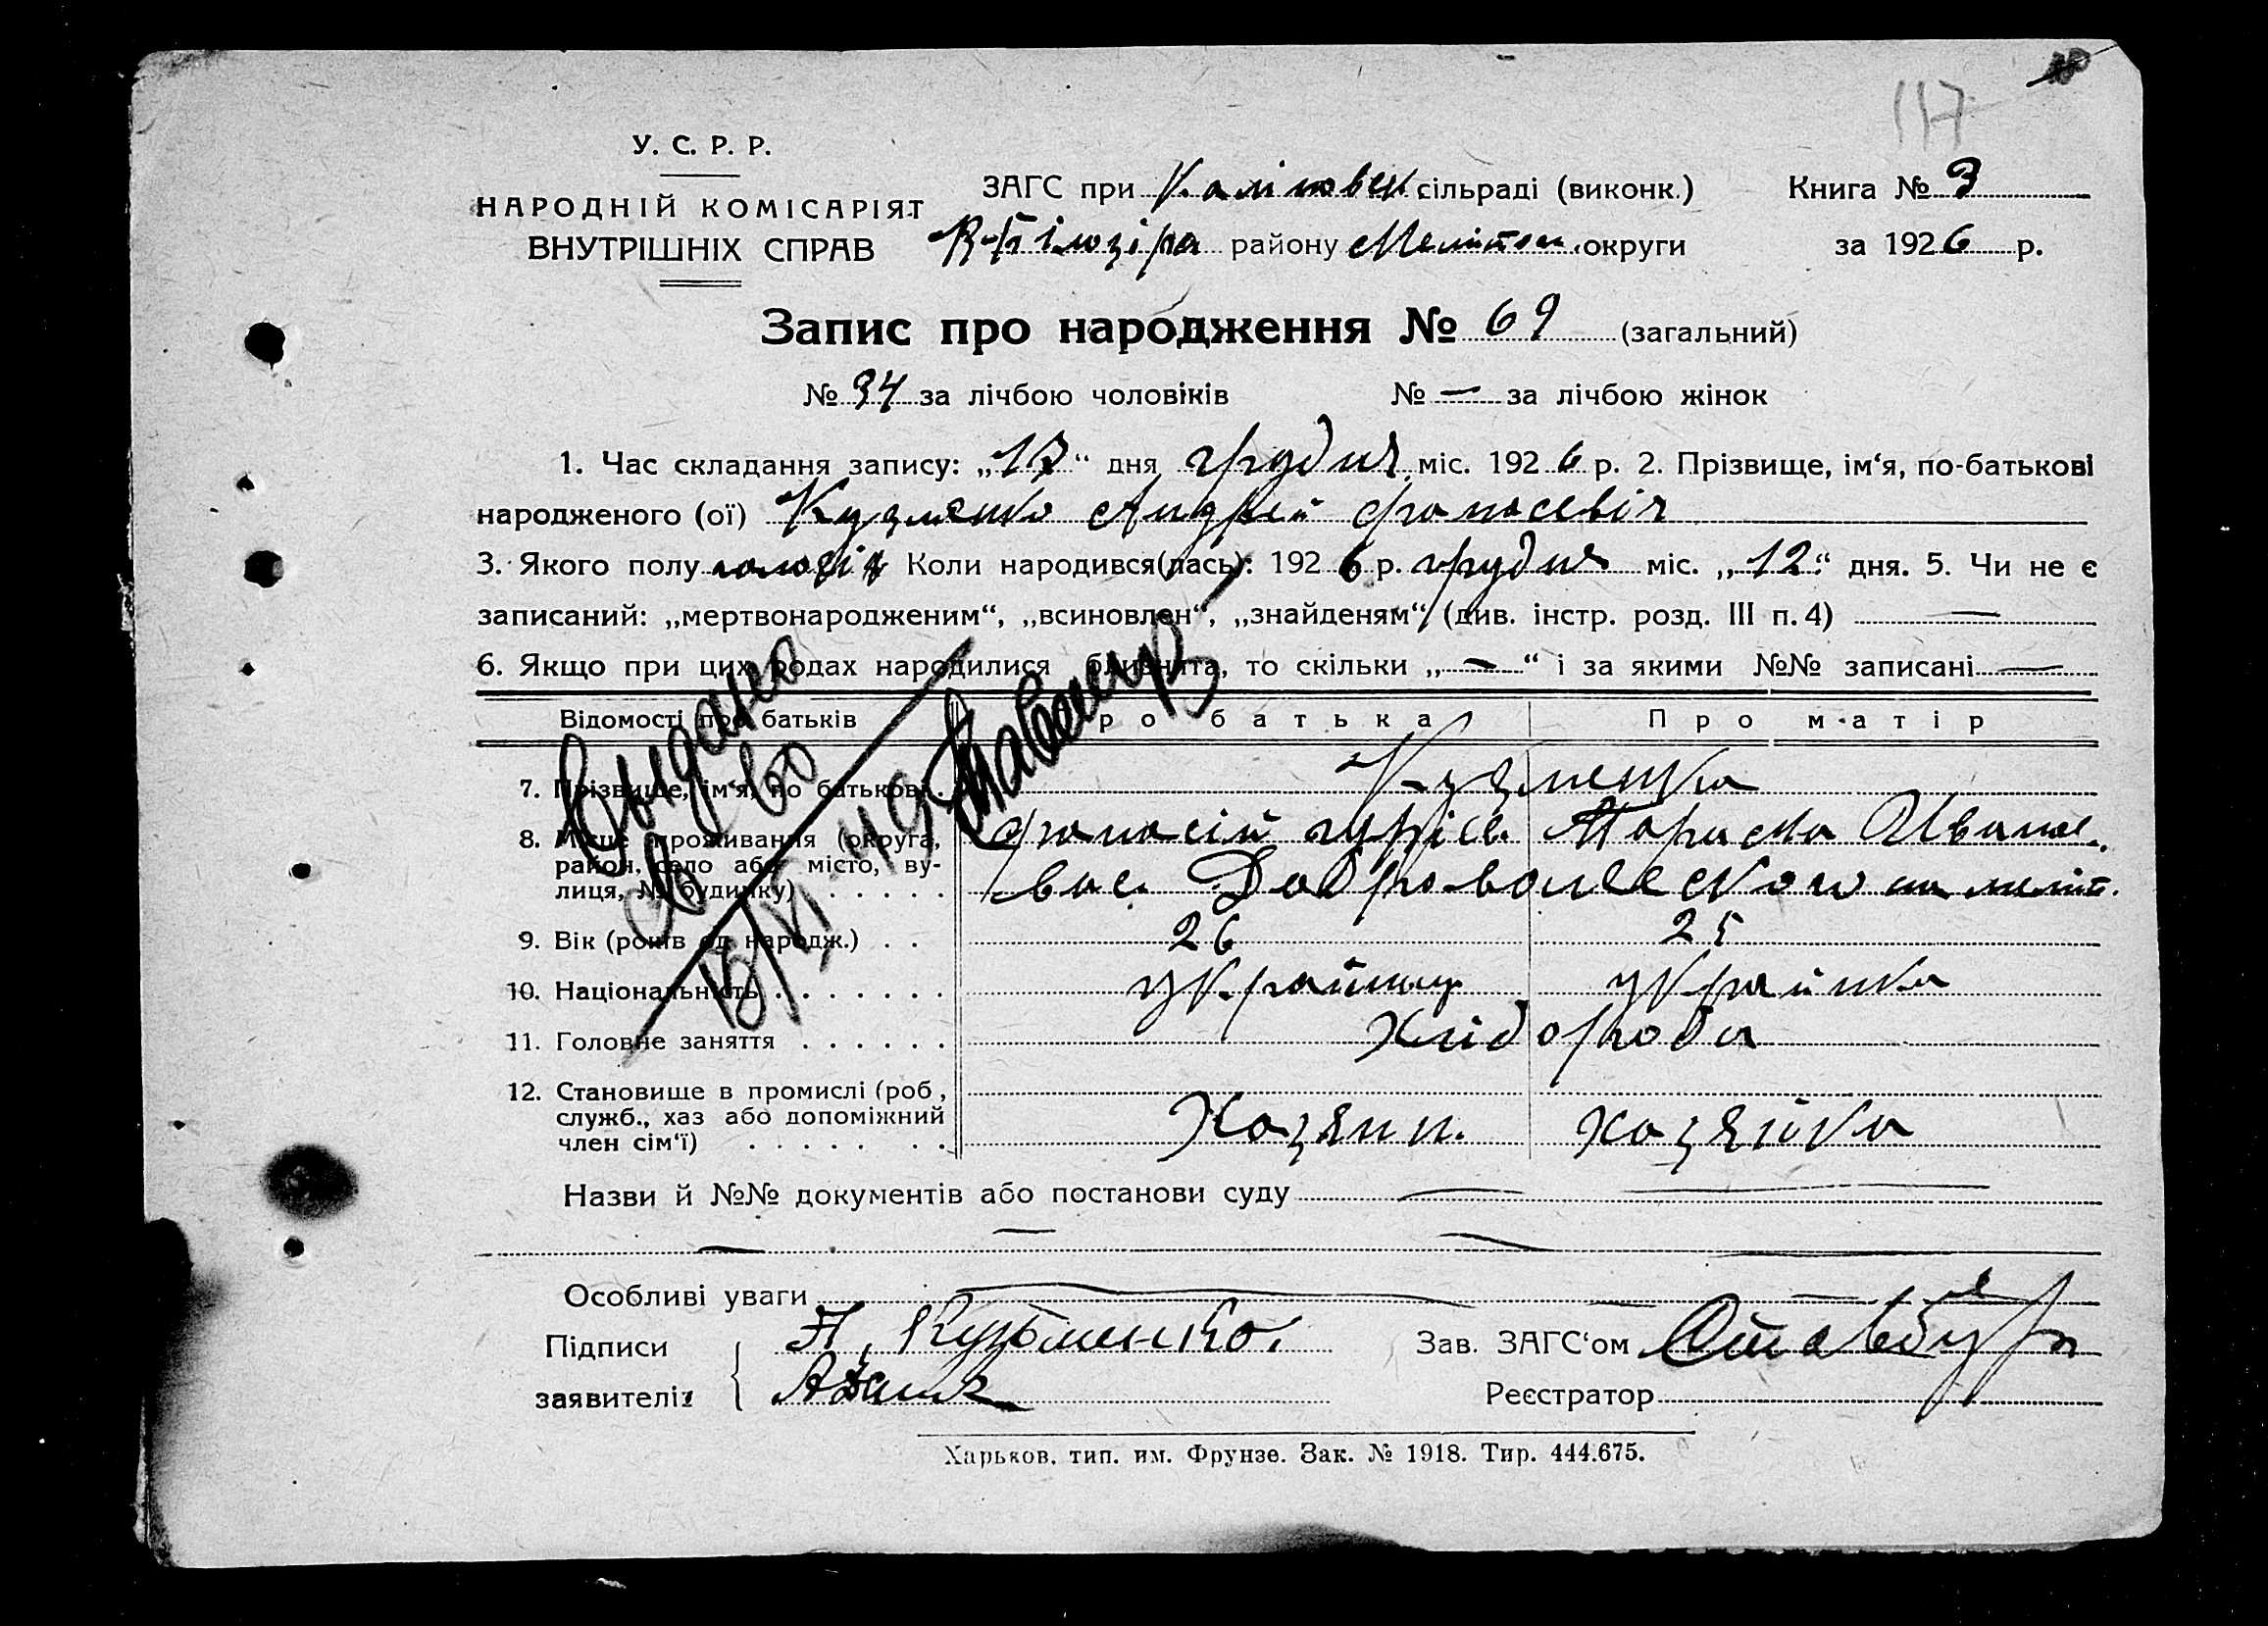 117
У. С. Р. Р.
НАРОДНІЙ КОМІСАРІЯТ
ВНУТРІШНІХ СПРАВ
ЗАГС при сільраді (виконк.)
Книга № 3
району округи
за 1926 р.
Запис про народження № 69 (загальний)
№ 34 за лічбою чоловіків № — за лічбою жінок
1. Час складання запису: „17“ дня грудня міс. 1926 р. 2. Прізвище, ім‘я, по-батькові
народженого (ої) Кузменко Андрей
3. Якого полу Коли народився(лась): 1926 р. грудня міс. „12“ дня. 5. Чи не є
записаний: „мертвонародженим“, „всиновлен“, „знайденям“ (див. інстр. розд. III п. 4) —
6. Якщо при цих родах народилися близнита, то скільки „—“ і за якими №№ записані —
Відомості про батьків Про батька Про матір
Выдано
св-во
7. Прізвище, ім‘я, по батькові . Кузменко
8. Місце проживання (округа,
район, село або місто, ву-
лиця, № будинку) . . . . .
9. Вік (років од народж.) . . 26 25
10. Національність . . . . . . . українец українка
11. Головне заняття . . . . . . Хлібороби
12. Становище в промислі (роб,
служб., хаз або допоміжний
член сім‘ї) . . . . . . . Хозяин. хозяйка
Назви й №№ документів або постанови суду —
Особливі уваги —
Підписи
заявителів
А. Кузьменко.
Зав. ЗАГС‘ом
Реєстратор
Харьков, тип. им. Фрунзе. Зак. № 1918. Тир. 444.675.